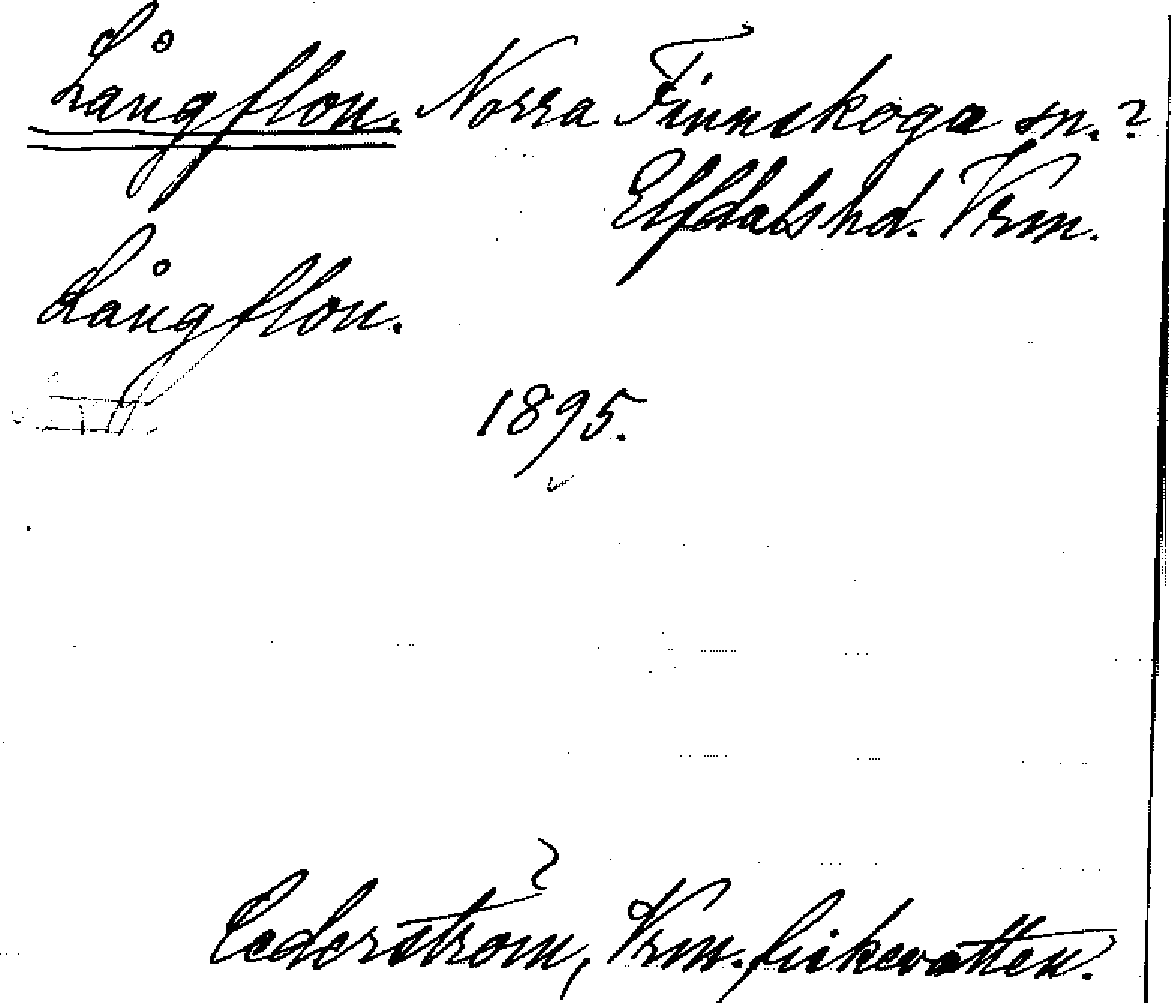 Långflon. Norra Finnskoga sn.?
Elfdals hd. Vrm.
Långflon.
1895.
Cederström, Vrm. fiskevatten.